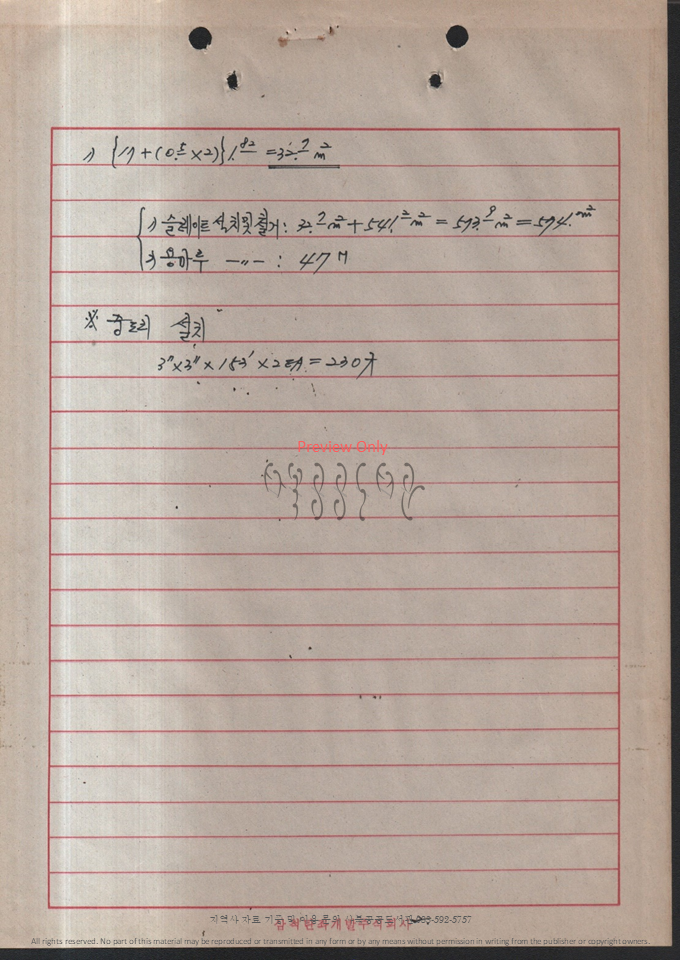 1) {17+(0.5×2)}1.82 =32.7m²
1) 슬레이트 설치 및 철거: 32.7m²+541.2m² = 573.9m² = 574.m²
2) 용마루 —〃— : 47M
※ 중도리 설치
3"×3"×153'×2EA = 230才
Preview Only
지역사 자료 기록 및 미움 동원 사북공공도서관 033-592-5757
삼척탄좌개발주식회사
All rights reserved. No part of this material may be reproduced or transmitted in any form or by any means without permission in writing from the publisher or copyright owners.